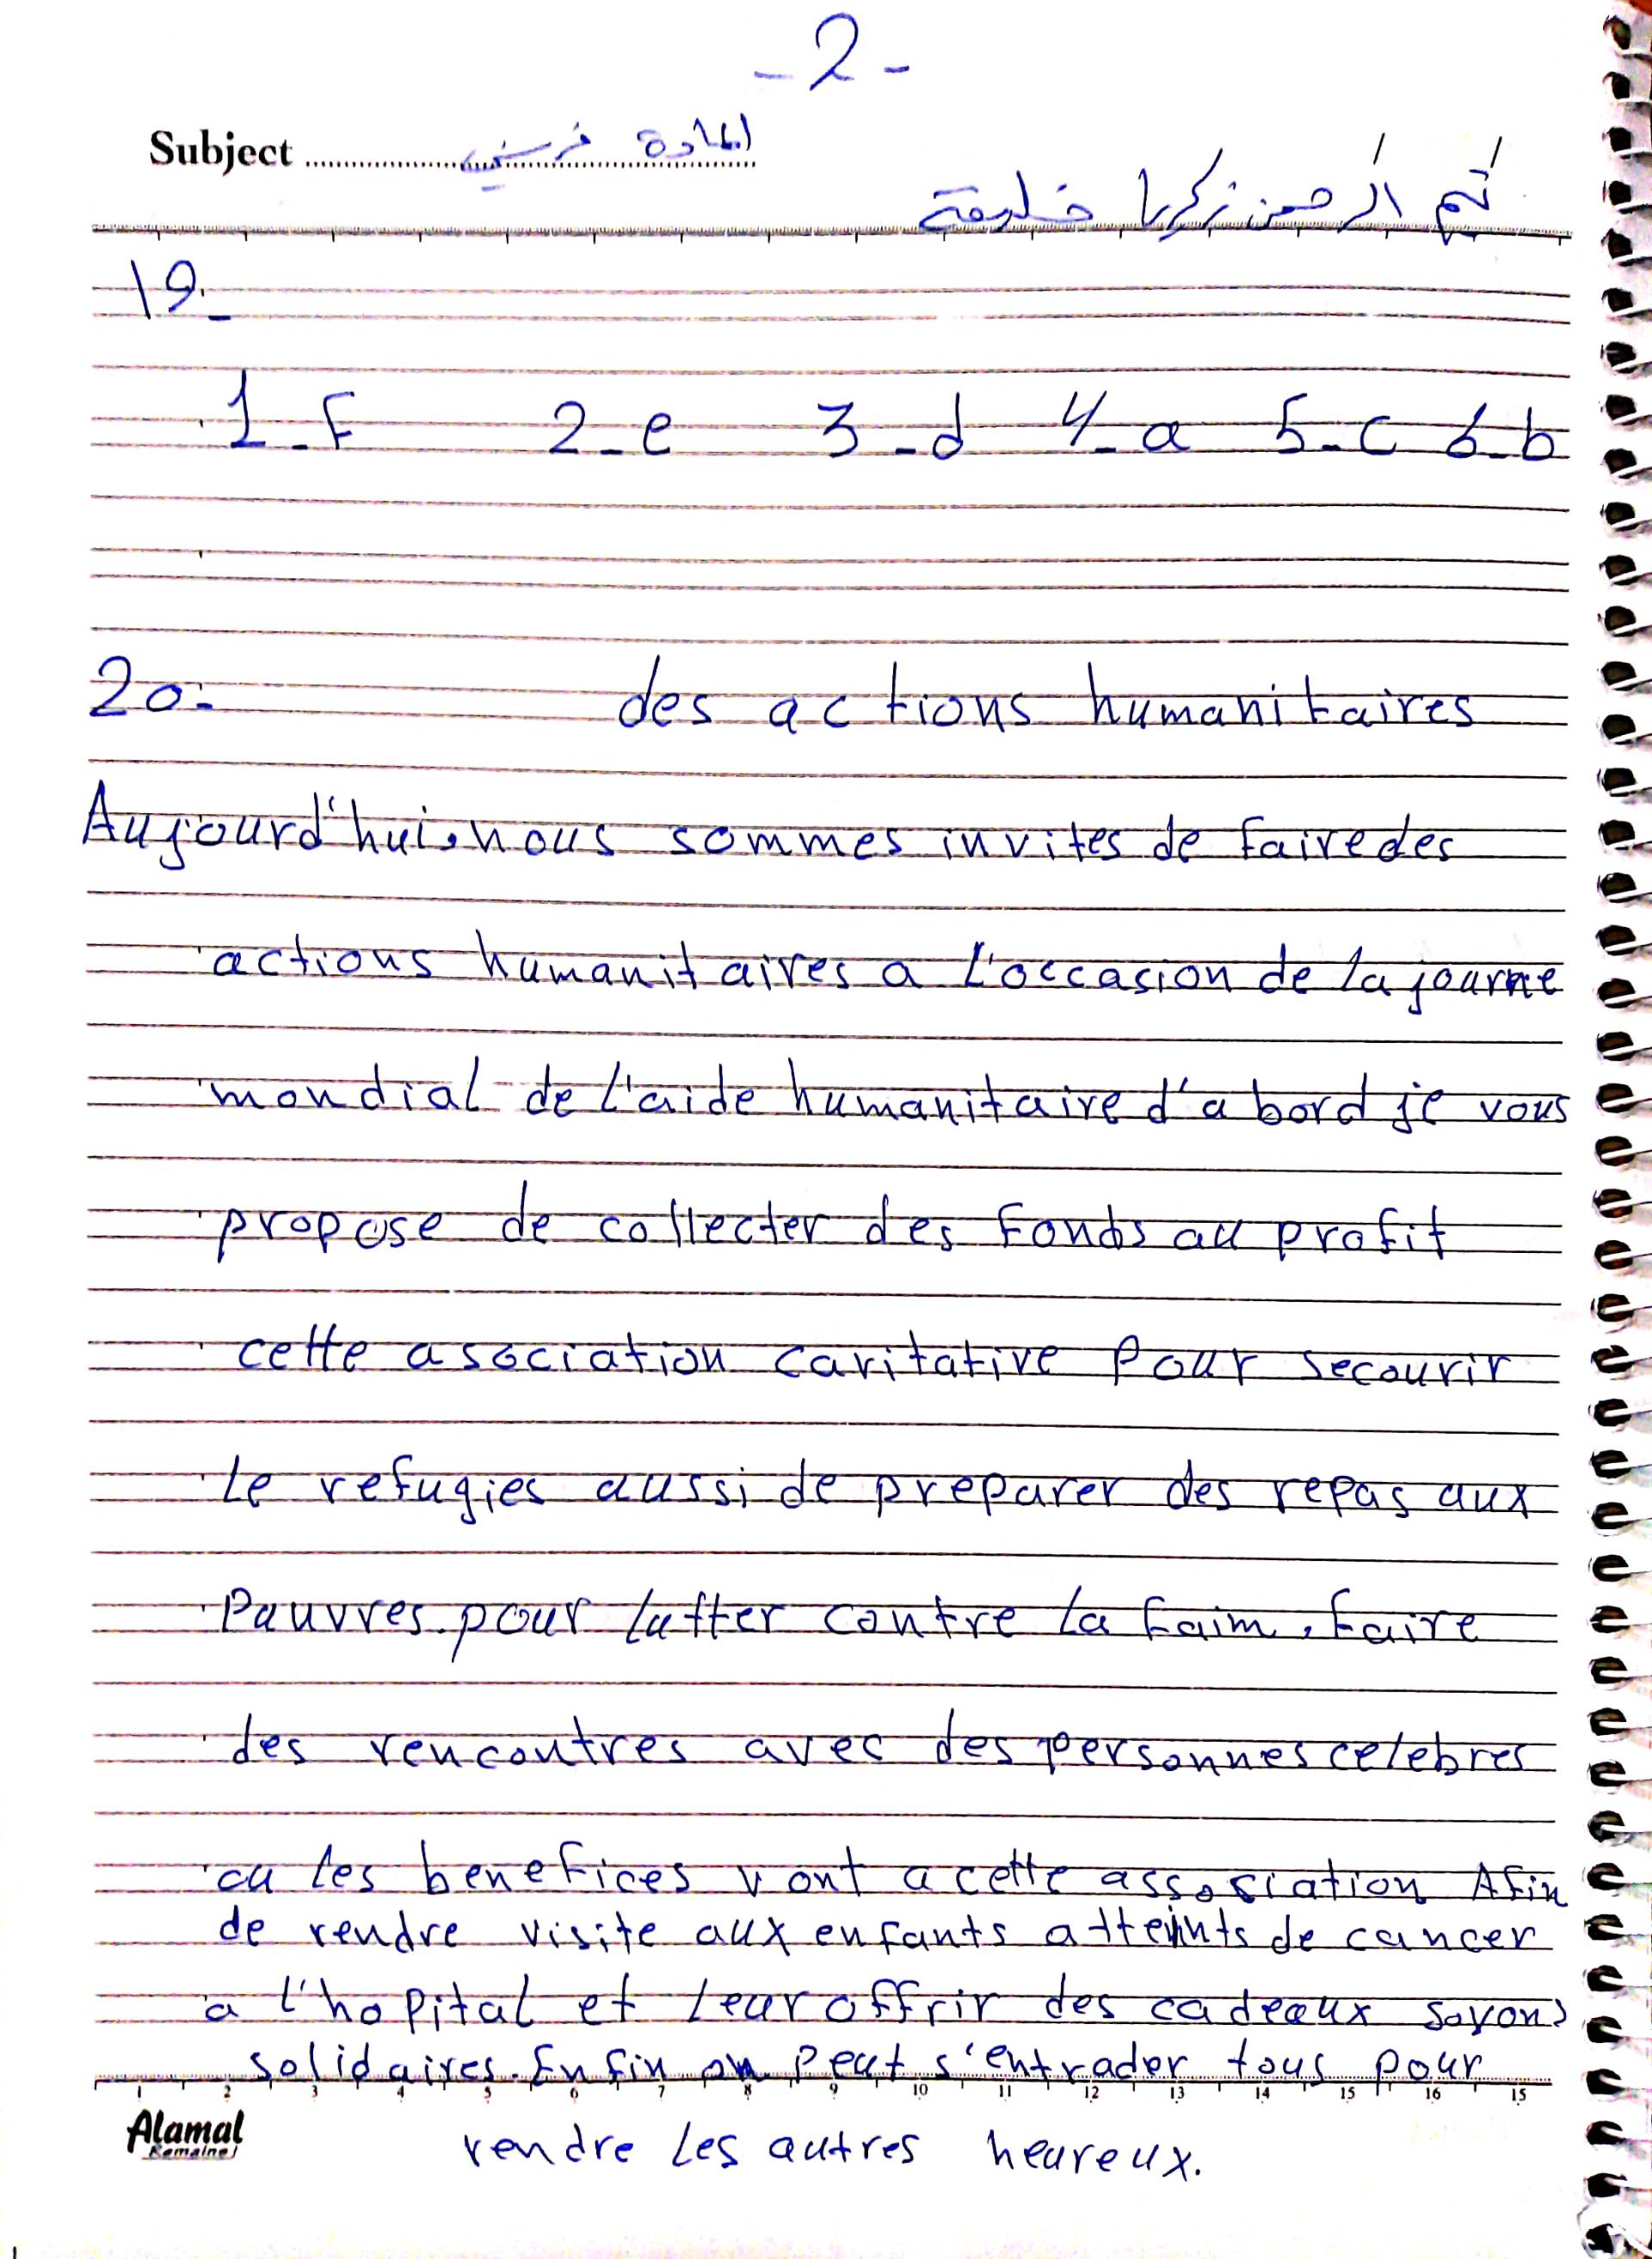 - 2 -
Subject المادة فرنسي
الرحمن زكريا خليفة
19-
1-F 2-e 3-d 4-a 5-c 6-b
20- des actions humanitaires
Aujourd'hui, nous sommes invites de faire des
actions humanitaires a l'occasion de la journe
mondial de l'aide humanitaire d'abord je vous
propose de collecter des Fonds au profit
cette asociation caritative pour secourir
le refugies aussi de preparer des repas aux
Pauvres. pour lutter contre la faim. faire
des rencontres avec des personnes celebres
ou les benefices vont a cette association Afin
de rendre visite aux enfants atteints de cancer
a l'hopital et leur offrir des cadeaux soyons
solidaires. Enfin on peut s'entrader tous pour
1 2 3 4 5 6 7 8 9 10 11 12 13 14 15 16 15
Alamal
Romaine
rendre les autres heureux.